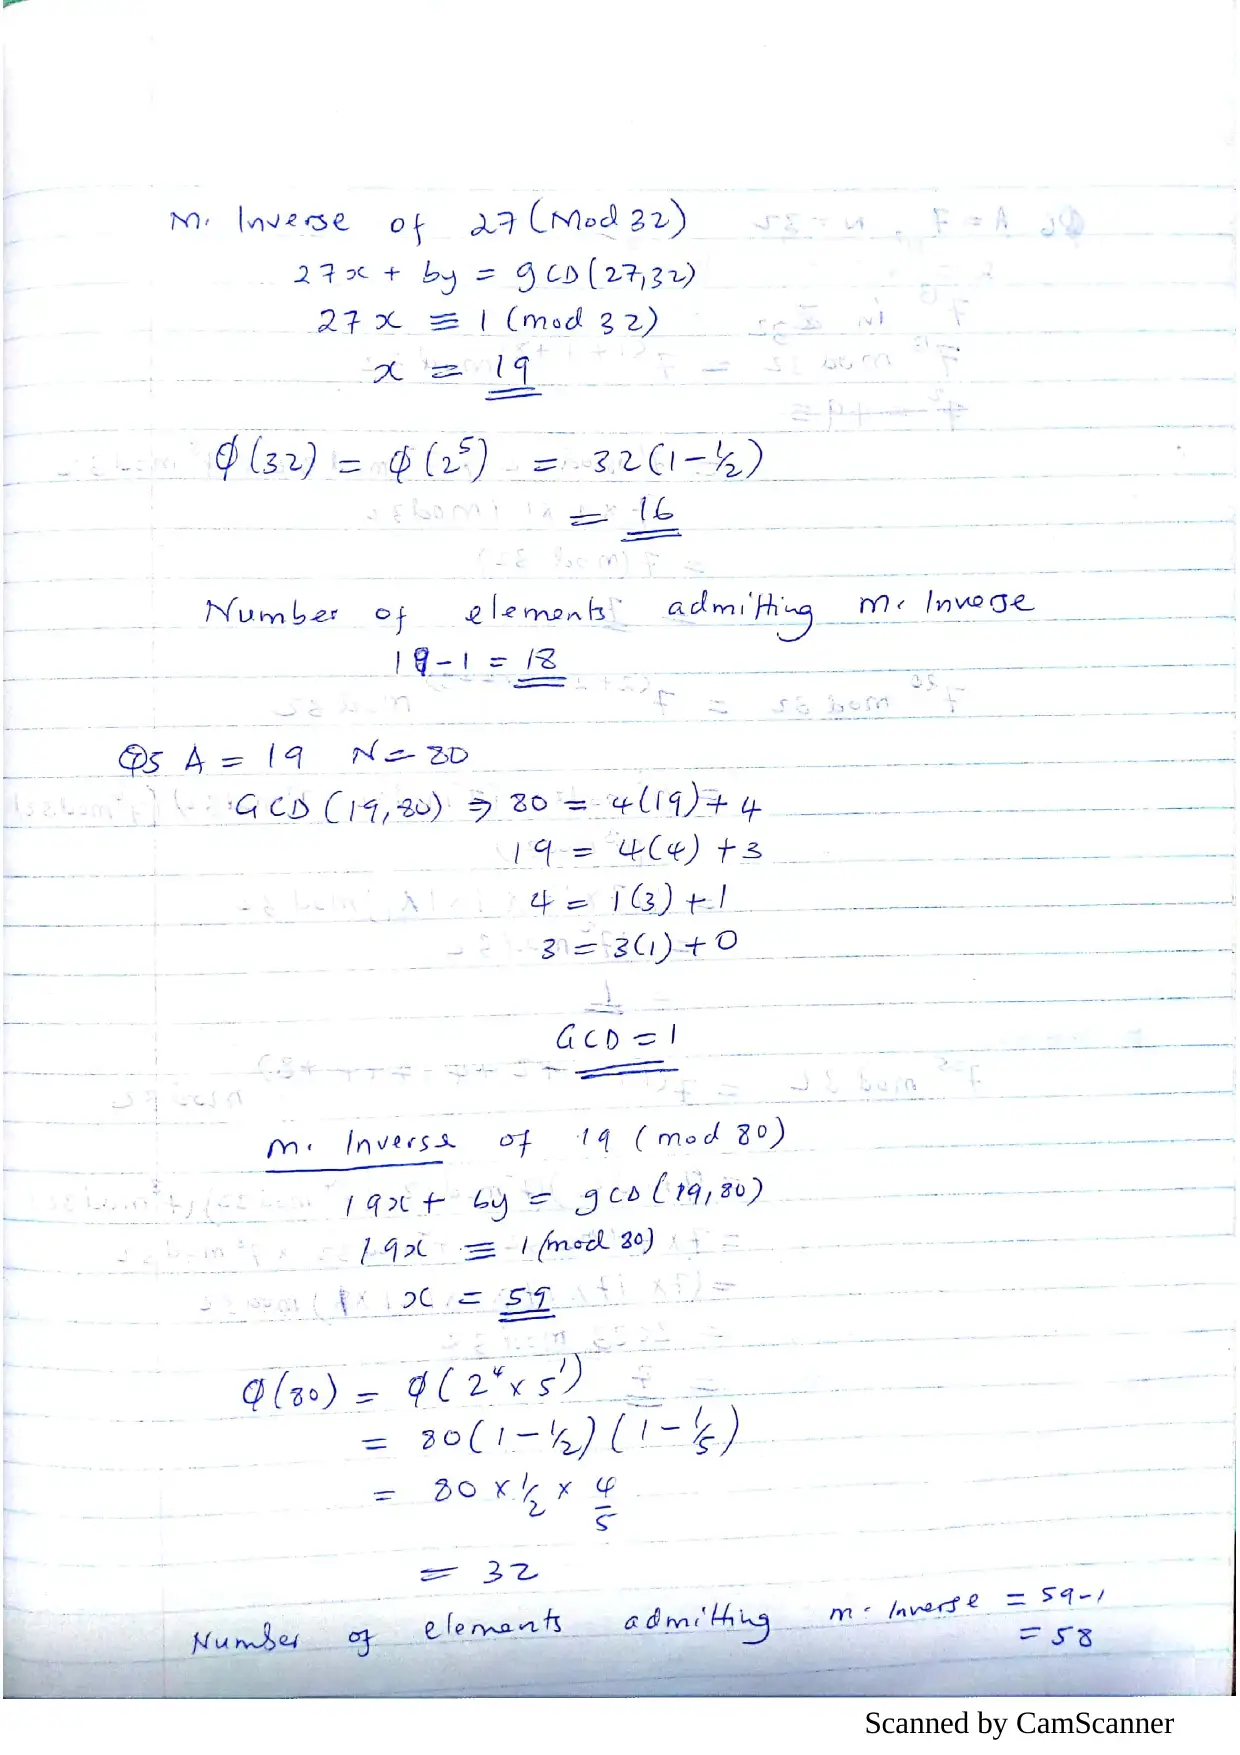 M. Inverse of 27 (Mod 32)
27x + by = gCD(27,32)
27x ≡ 1 (mod 32)
x = 19
φ(32) = φ(2⁵) = 32(1-½)
= 16
Number of elements admitting m. Inverse
19-1 = 18
Q5 A = 19 N = 80
GCD (19,80) ⇒ 80 = 4(19)+4
19 = 4(4) +3
4 = 1(3) +1
3 = 3(1) +0
GCD = 1
m. Inverse of 19 (mod 80)
19x + by = gCD(19,80)
19x ≡ 1 (mod 80)
x = 59
φ(80) = φ(2⁴ x 5¹)
= 80(1-½)(1-⅕)
= 80 x ½ x 4/5
= 32
Number of elements admitting m. Inverse = 59-1
= 58
Scanned by CamScanner